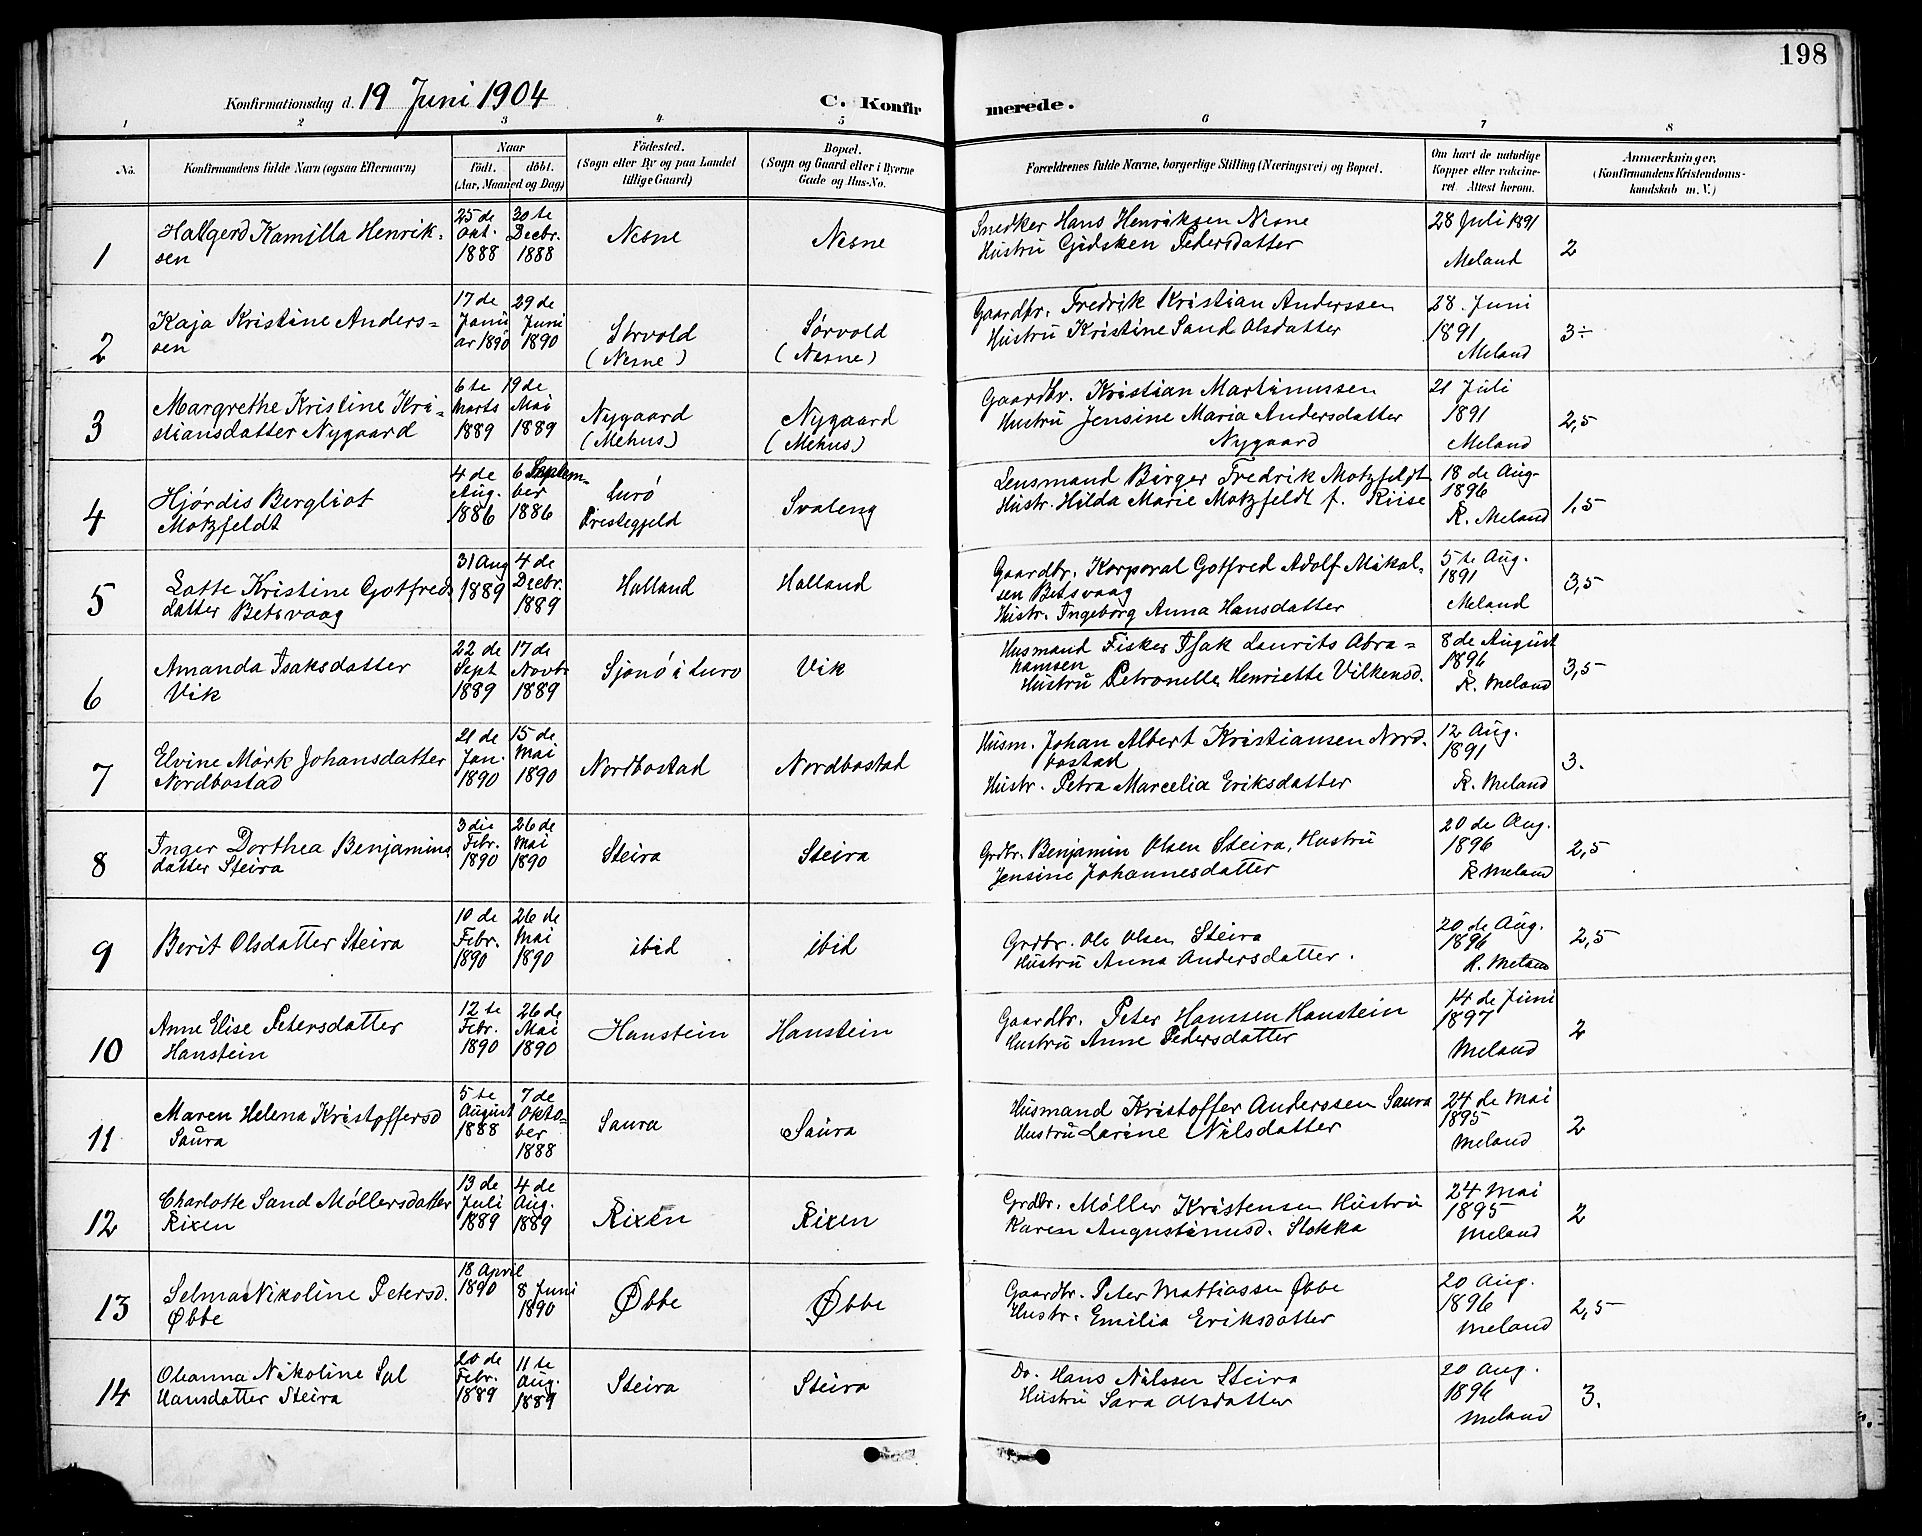 198
Konfirmationsdag d. 19 Juni 1904
C. Konfirmerede.
1 2 3 4 5 6 7 8
No.
Konfirmandens fulde Navn (ogsaa Efternavn)
Naar
født. døbt.
(Aar, Maaned og Dag)
Födested.
(Sogn eller By og paa Landet
tillige Gaard)
Bopæl.
(Sogn og Gaard eller i Byerne
Gade og Hus-No.
Forældrenes fulde Navne, borgerlige Stilling (Næringsvei) og Bopæl.
Om havt de naturlige
Kopper eller vaccine-
ret. Attest herom.
Anmærkninger,
(Konfirmandens Kristendoms-
kundskab m. V.)
1
Halgerd Kamilla Henrik-
sen
25 de
Okt.
1888
30 te
Decbr.
1888
Nesne
Nesne
Snedker Hans Henriksen Nesne
Hustru Gjidsken Pedersdatter
28 Juli 1891
Meland
2
2
Kaja Kristine Anders=
sen
17 de
Janu
ar 1890
29 de
Juni
1890
Sørvold
(Nesne)
Sørvold
(Nesne)
Gaardbr. Fredrik Kristian Anderssen
Hustru Kristine Sand Olsdatter
28. Juni
1891
Meland
3÷
3
Margrethe Kristine Kri-
stiansdatter Nygaard
6 te
Marts
1889
19 de
Mai
1889
Nygaard
(Mehus)
Nygaard
(Mehus)
Gaardbr. Kristian Martinussen
Hustru Jensine Maria Andersdatter
Nygaard
21 Juli
1891
Meland
2,5
4
Hjørdis Bergliot
Motzfeldt
4 de
Aug.
1886
6 Septem-
ber
1886
Lurö
Prestegjeld
Svaleng
Lensmand Birger Fredrik Motzfeldt
Hustr. Hilda Marie Motzfeldt f. Riise
18 de Aug.
1896
K. Meland
1,5
5
Lotte Kristine Gotfreds
datter Betsvaag
31 Aug
1889
4 de
Decbr.
1889
Halland
Halland
Gaardbr. Korporal Gotfred Adolf Mikal-
sen Betsvaag
Hustr. Ingeborg Anna Hansdatter
5 te Aug.
1891
Meland
3,5
6
Amanda Isaksdatter
Vik
22 de
Sept
1889
17 de
Novbr
1889
Sjonö i Lurö
Vik
Husmand Fisker Isak Laurits Abra=
hamsen
Hustru Petronelle Henriette Vilkensd.
8 de August
1896
K. Meland
3,5
7
Elvine Mörk Johansdatter
Nordbostad
21 de
Jan.
1890
15 de
Mai
1890
Nordbostad
Nordbostad
Husm. Johan Albert Kristiansen Nord-
bostad
Hustr. Petra Marcelia Eriksdatter
12 Aug.
1891
K. Meland
3.
8
Inger Dorthea Benjamins
datter Steira
3 die
Febr.
1890
26 de
Mai
1890
Steira
Steira
Grdbr. Benjamin Olsen Steira, Hustru
Jensine Johannesdatter
20 de Aug.
1896
K Meland
2,5
9
Berit Olsdatter Steira
10 de
Febr.
1890
26 de
Mai
1890
ibid
ibid
Grdbr. Ole Olsen Steira
Hustru Anna Andersdatter.
20 de Aug.
1896
K. Meland
2,5
10
Anne Elise Petersdatter
Hanstein
12 te
Febr.
1890
26 de
Mai
1890
Hanstein
Hanstein
Gaardbr. Peter Hanssen Hanstein
Hustru Anne Pedersdatter
14 de Juni
1897
Meland
2
11
Maren Helena Kristoffersd
Saura
5 te
August
1888
7 de
Okto-
ber
1888
Saura
Saura
Husmand Kristoffer Anderssen Saura
Hustru Larine Nilsdatter
24 de Mai
1895
Meland
2
12
Charlotte Sand Møllersdatter
Rixen
13 de
Juli
1889
4 de
Aug.
1889
Rixen
Rixen
Grdbr. Møller Kristensen Hustru
Karen Augustinusd. Stokka
24 Mai
1895
Meland
2
13
Selma Nikoline Petersd.
Øbbe
18 April
1890
8 Juni
1890
Øbbe
Øbbe
Gaardbr. Peter Mattiassen Øbbe
Hustr. Emilia Eriksdatter
20 Aug.
1896
Meland
2,5
14
Oleanna Nikoline Sal
Hansdatter Steira
20 de
Febr.
1889
11 te
Aug.
1889
Steira
Steira
Do. Hans Nilssen Steira
Hustru Sara Olsdatter
20 Aug.
1896
Meland
3.